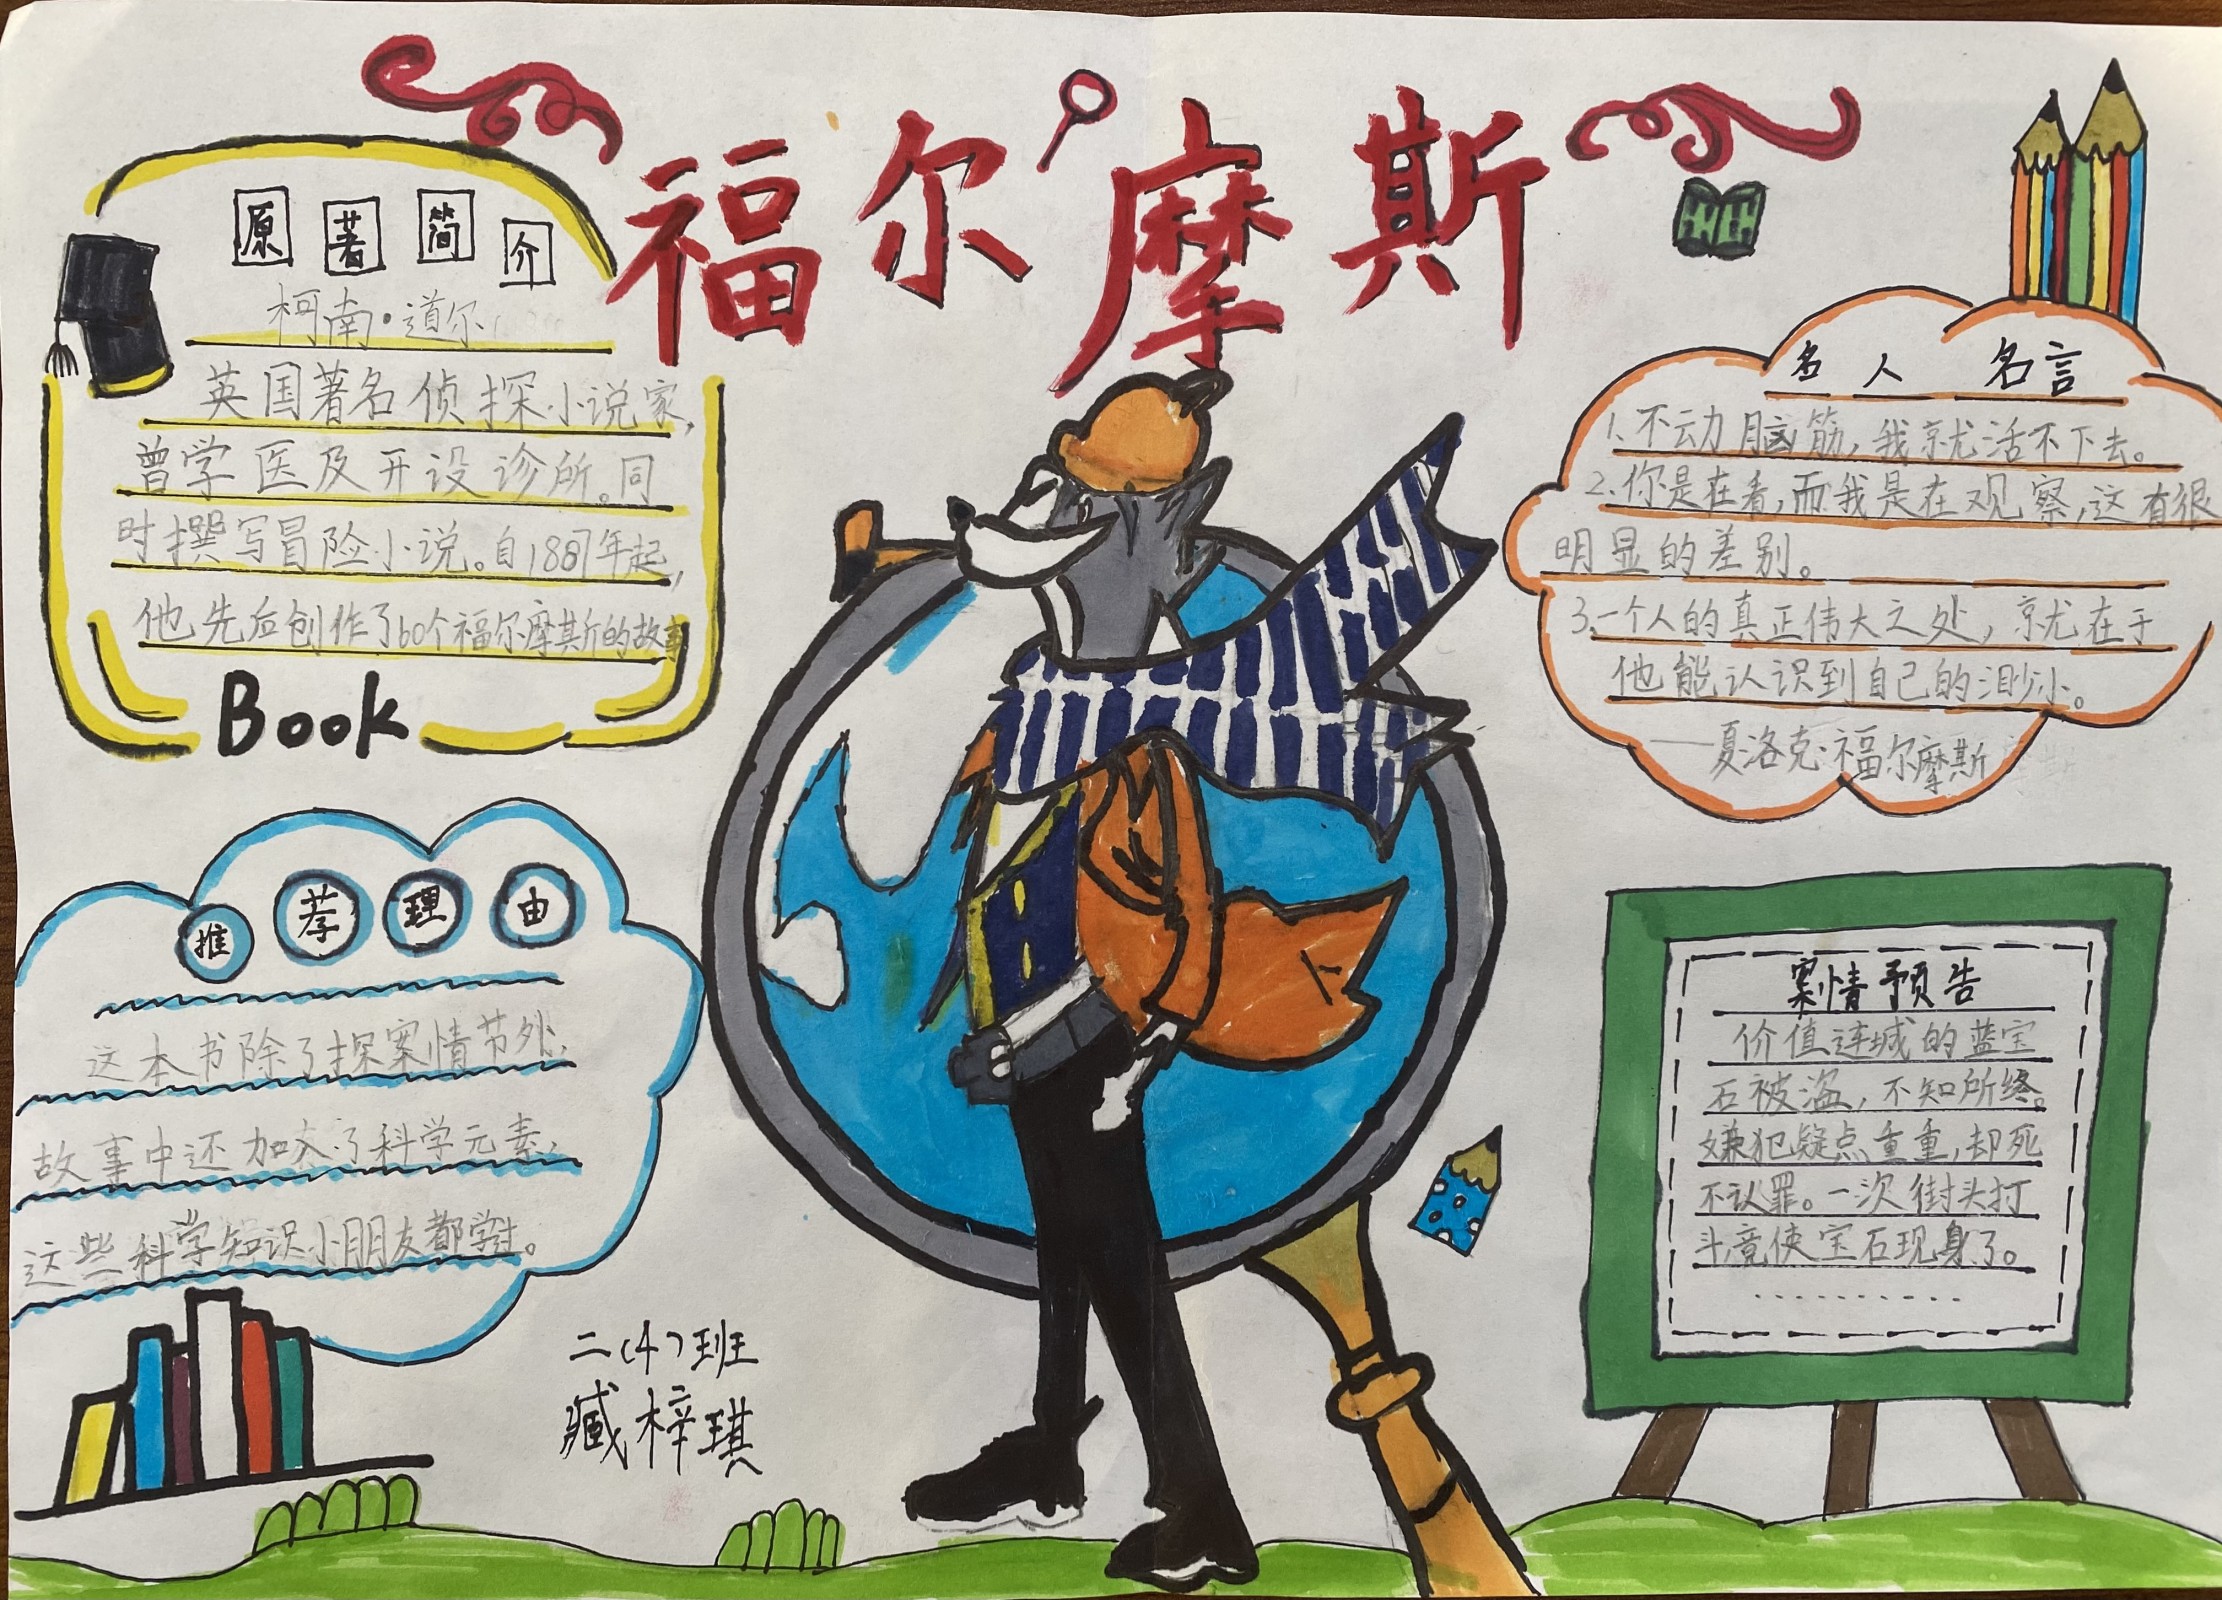 福尔摩斯
原著简介
柯南·道尔
英国著名侦探小说家,
曾学医及开设诊所。同
时撰写冒险小说。自1887年起,
他先后创作了60个福尔摩斯的故事
Book
名人 名言
1.不动脑筋,我就活不下去。
2.你是在看,而我是在观察,这有很
明显的差别。
3.一个人的真正伟大之处,就在于
他能认识到自己的渺小。
——夏洛克·福尔摩斯
推荐理由
这本书除了探案情节外,
故事中还加入了科学元素,
这些科学知识小朋友都学过。
案情预告
价值连城的蓝宝
石被盗,不知所终。
嫌犯疑点重重,却死
不认罪。一次街头打
斗,竟使宝石现身了。
............
二(4)班
臧梓琪